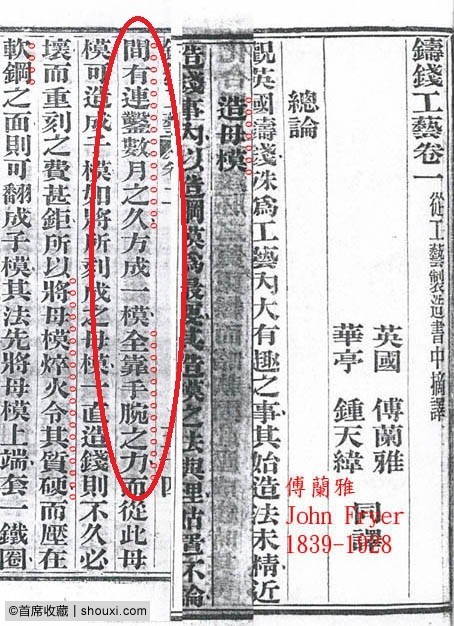 鑄錢工藝卷一 從工藝製造書中摘譯
英國 傅蘭雅
華亭 鍾天緯
同譯
總論
觀英國鑄錢殊為工藝內大有趣之事其始造法未精近
造母模
造錢事內以造鋼模為最要其造模之法與理姑置不論
四
間有連鑿數月之久方成一模全靠手腕之力而從此母
模可造成子模如將所刻成之母模一直造錢則不久必
壞而重刻之費甚鉅所以將母模焠火令其質硬而壓在
軟鋼之面則可翻成子模其法先將母模上端套一鐵圈
傅蘭雅
John Fryer
1839-1928
©首席收藏 | shouxi.com